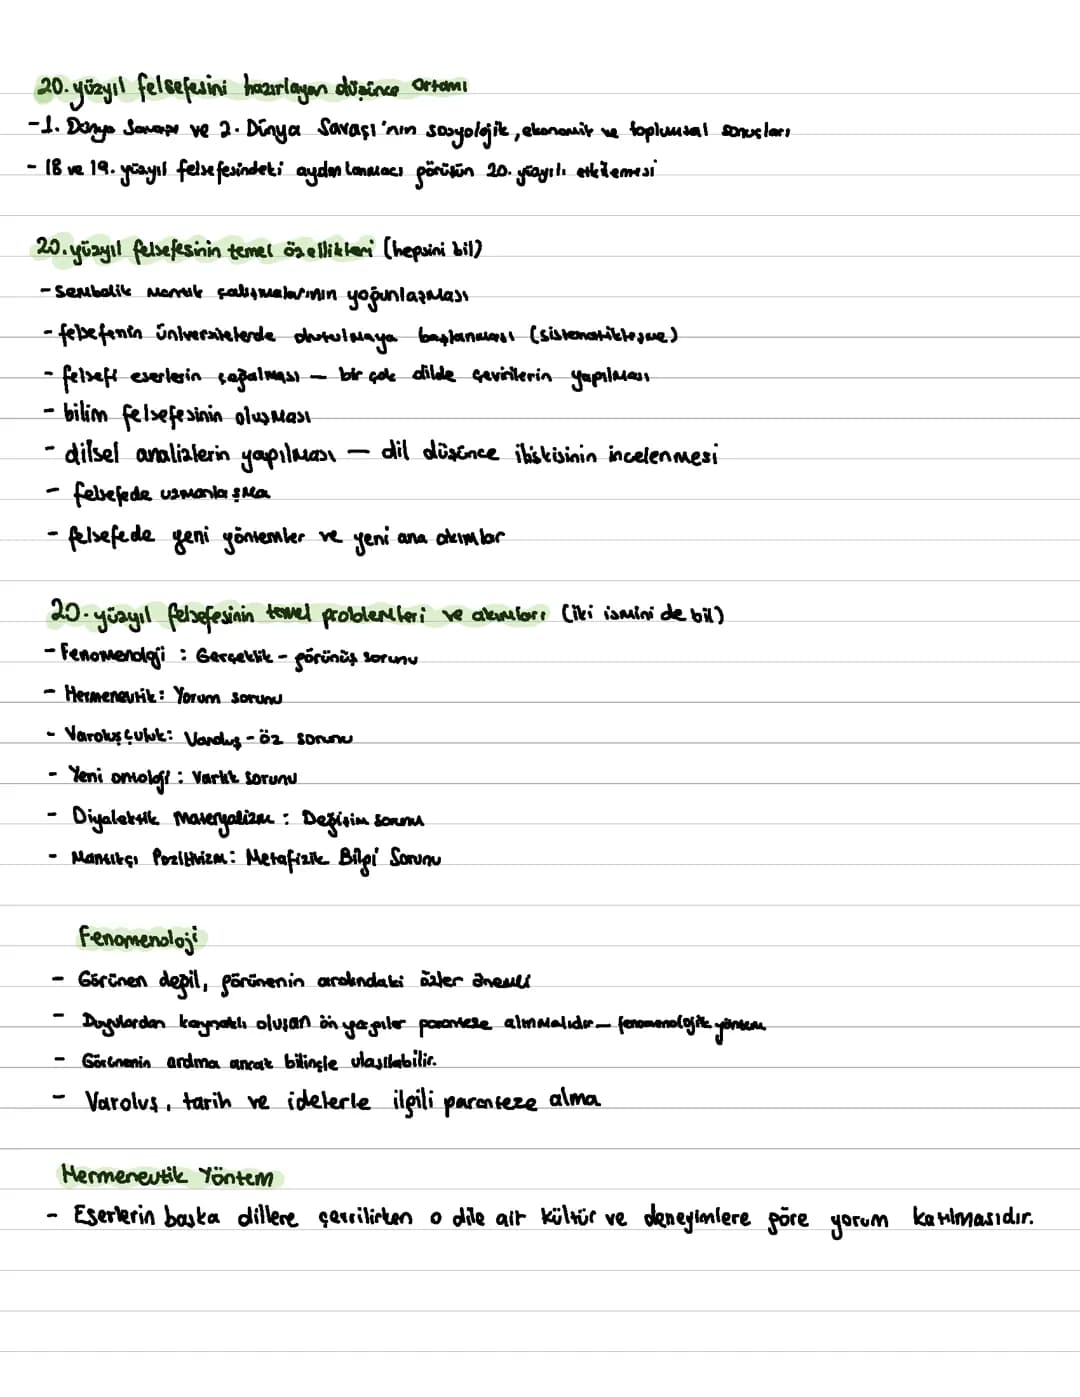 20. yüzyıl felsefesini hazırlayan düşünce ortamı
-1. Dünya Savaşı ve 2. Dünya Savaşı'nın sosyolojik, ekonomik ve toplumsal sonuçları
- 18 ve 19. yüzyıl felsefesindeki aydınlanmacı görüşün 20. yüzyılı etkilemesi
20. yüzyıl felsefesinin temel özellikleri (hepsini bil)
- Sembolik Mantık çalışmalarının yoğunlaşması
- felsefenin üniversitelerde okutulmaya başlanması (sistematikleşme)
- felsefi eserlerin çoğalması — bir çok dilde çevirilerin yapılması
- bilim felsefesinin oluşması
- dilsel analizlerin yapılması — dil düşünce ilişkisinin incelenmesi
- felsefede uzmanlaşma
- felsefede yeni yöntemler ve yeni ana akımlar
20. yüzyıl felsefesinin temel problemleri ve akımları (iki ismini de bil)
- Fenomenoloji : Gerçeklik - görünüş sorunu
- Hermeneutik: Yorum sorunu
- Varoluşçuluk: Varoluş - öz sorunu
- Yeni ontoloji : Varlık sorunu
- Diyalektik Materyalizm : Değişim sorunu
- Mantıkçı Pozitivizm: Metafizik Bilgi Sorunu
Fenomenoloji
- Görünen değil, görünenin arakındaki özler önemli
- Duyulardan kaynaklı oluşan ön yargılar paranteze alınmalıdır — fenomenolojik yöntem
- Görünenin ardına ancak bilinçle ulaşılabilir.
- Varoluş, tarih ve idelerle ilgili paranteze alma
Hermeneutik Yöntem
- Eserlerin başka dillere çevrilirken o dile ait kültür ve deneyimlere göre yorum katılmasıdır.